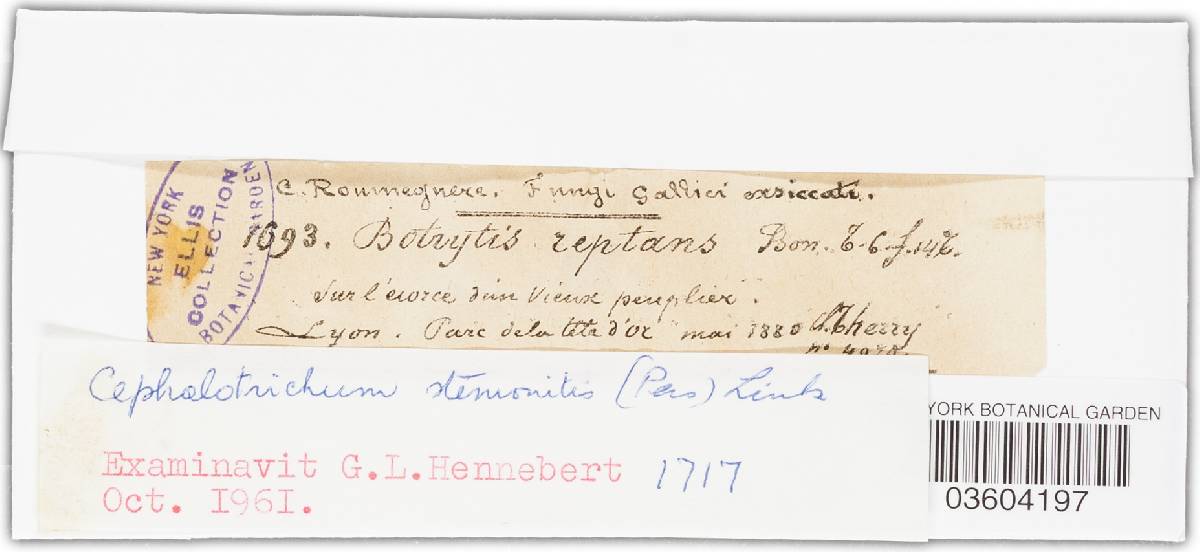 NEW YORK
ELLIS
COLLECTION
BOTANICAL GARDEN
C. Roumeguere. Fungi Gallici exsiccati.
1693. Botrytis reptans Bon. T. 6. f. 142.
Sur l'écorce d'un vieux peuplier.
Lyon. Parc de la tête d'or mai 1880 Therry
Cephalotrichum stemonitis (Pers) Link
Examinavit G.L.Hennebert 1717
Oct. I96I.
YORK BOTANICAL GARDEN
03604197